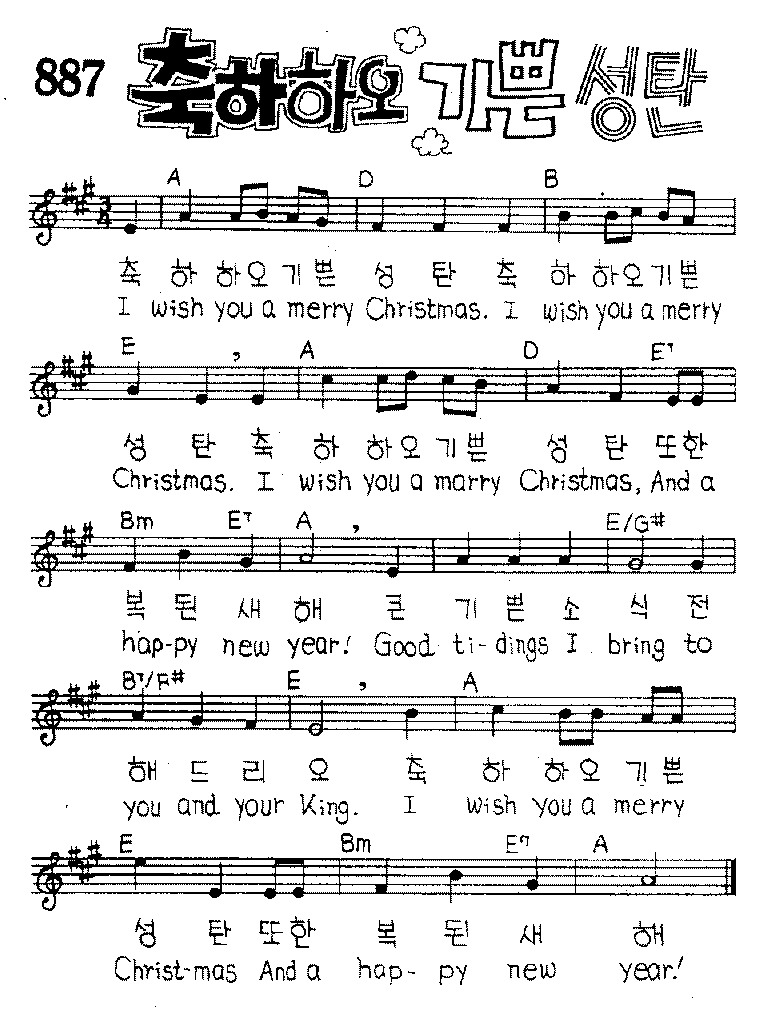 887 축하하오 기쁜 성탄
3/4
A D B
축 하 하오 기쁜 성 탄 축 하 하오기쁜
I wish you a merry Christmas. I wish you a merry
E A D E7
성 탄 축 하 하오기쁜 성 탄 또한
Christmas. I wish you a marry Christmas, And a
Bm E7 A E/G#
복 된 새 해 큰 기 쁜 소 식 전
hap-py new year! Good ti-dings I bring to
B7/F# E A
해 드 리 오 축 하 하오 기쁜
you and your King. I wish you a merry
E Bm E7 A
성 탄 또한 복 된 새 해
Christ-mas And a hap- py new year!